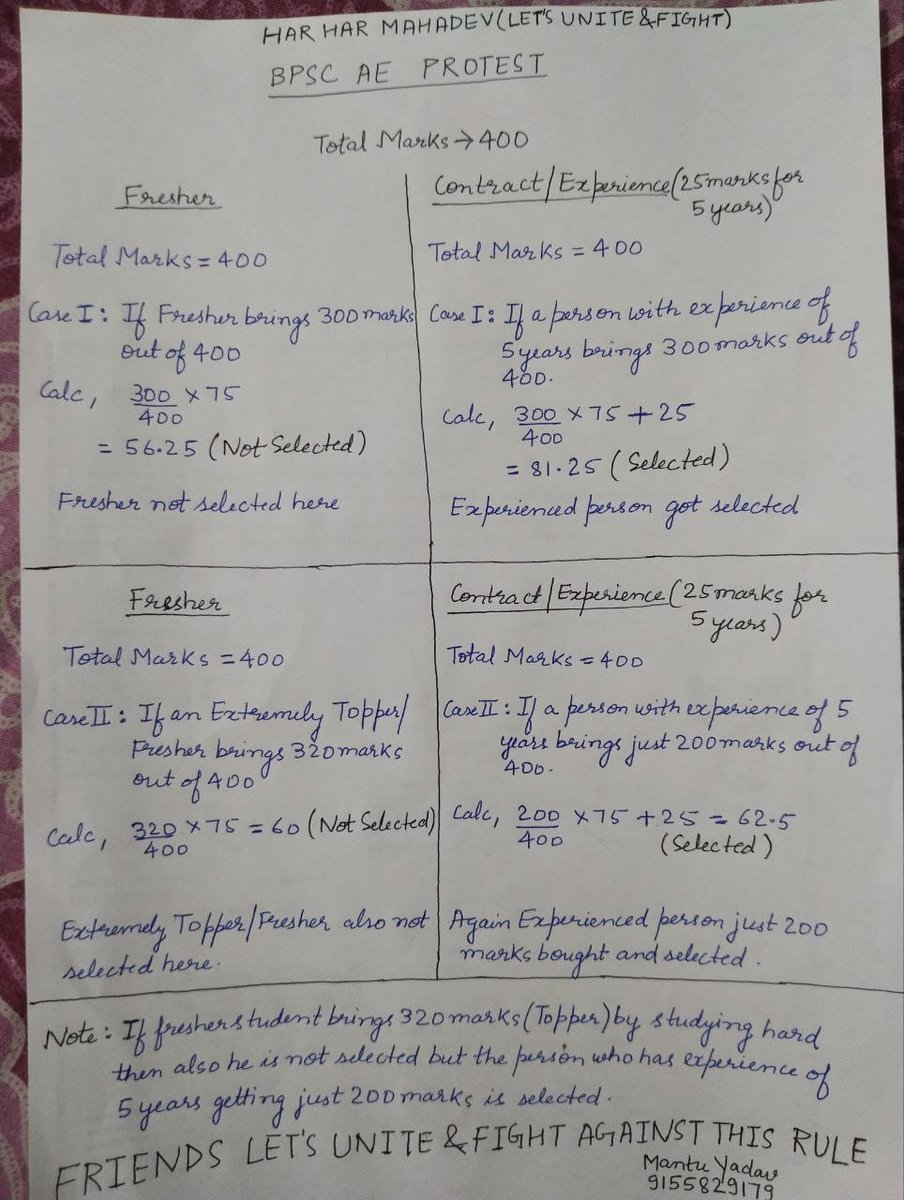 HAR HAR MAHADEV(LET'S UNITE & FIGHT)
BPSC AE PROTEST
Total Marks → 400
Fresher
Total Marks = 400
Case I : If Fresher brings 300 marks
out of 400
Calc, 300/400 × 75
= 56.25 (Not Selected)
Fresher not selected here
Contract/Experience (25 marks for
5 years)
Total Marks = 400
Case I : If a person with experience of
5 years brings 300 marks out of
400.
Calc, 300/400 × 75 + 25
= 81.25 (Selected)
Experienced person got selected
Fresher
Total Marks = 400
Case II : If an Extremely Topper/
Fresher brings 320 marks
out of 400
Calc, 320/400 × 75 = 60 (Not Selected)
Extremely Topper/Fresher also not
selected here.
Contract/Experience (25 marks for
5 years)
Total Marks = 400
Case II : If a person with experience of 5
years brings just 200 marks out of
400.
Calc, 200/400 × 75 + 25 = 62.5
(Selected)
Again Experienced person just 200
marks bought and selected.
Note : If fresher student brings 320 marks (Topper) by studying hard
then also he is not selected but the person who has experience of
5 years getting just 200 marks is selected.
FRIENDS LET'S UNITE & FIGHT AGAINST THIS RULE
Mantu Yadav
9155829179